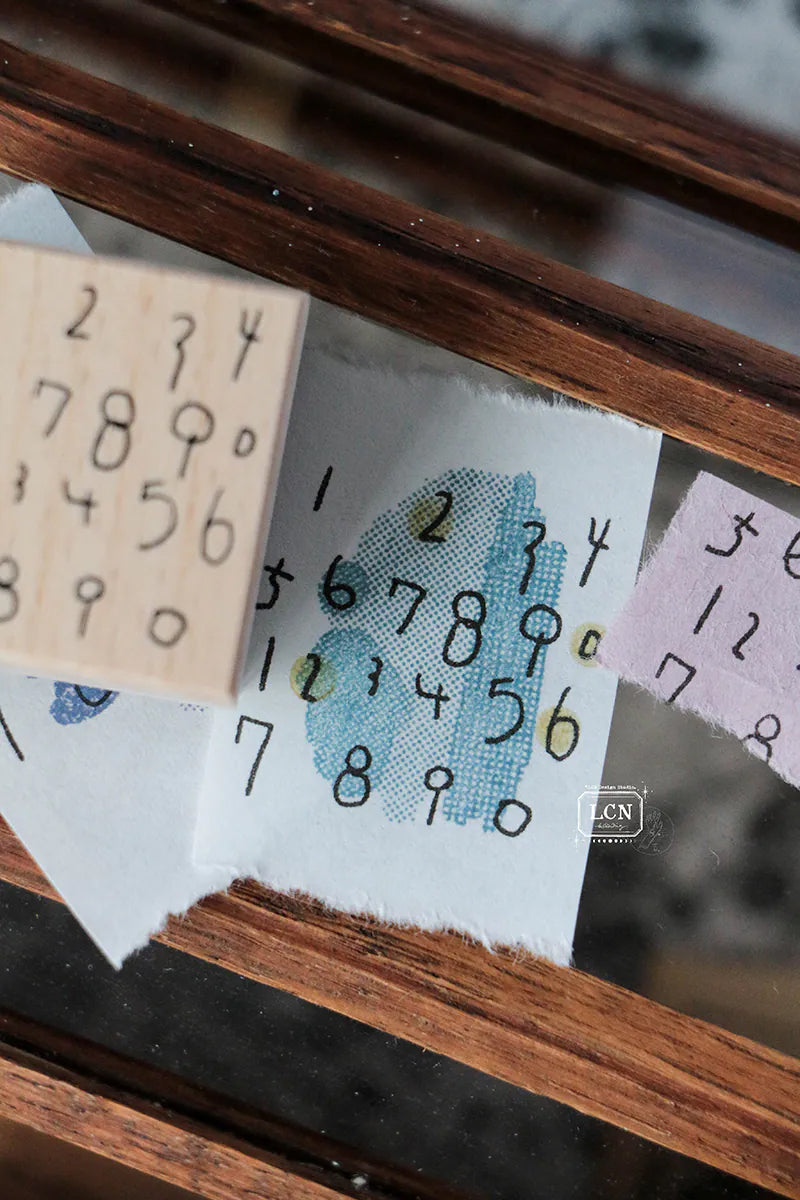 2 3 4
7 8 9 0
3 4 5 6
8 9 0
1 2 3 4
5 6 7 8 9 0
1 2 3 4 5 6
7 8 9 0
5 6
1 2
7 8
LCN